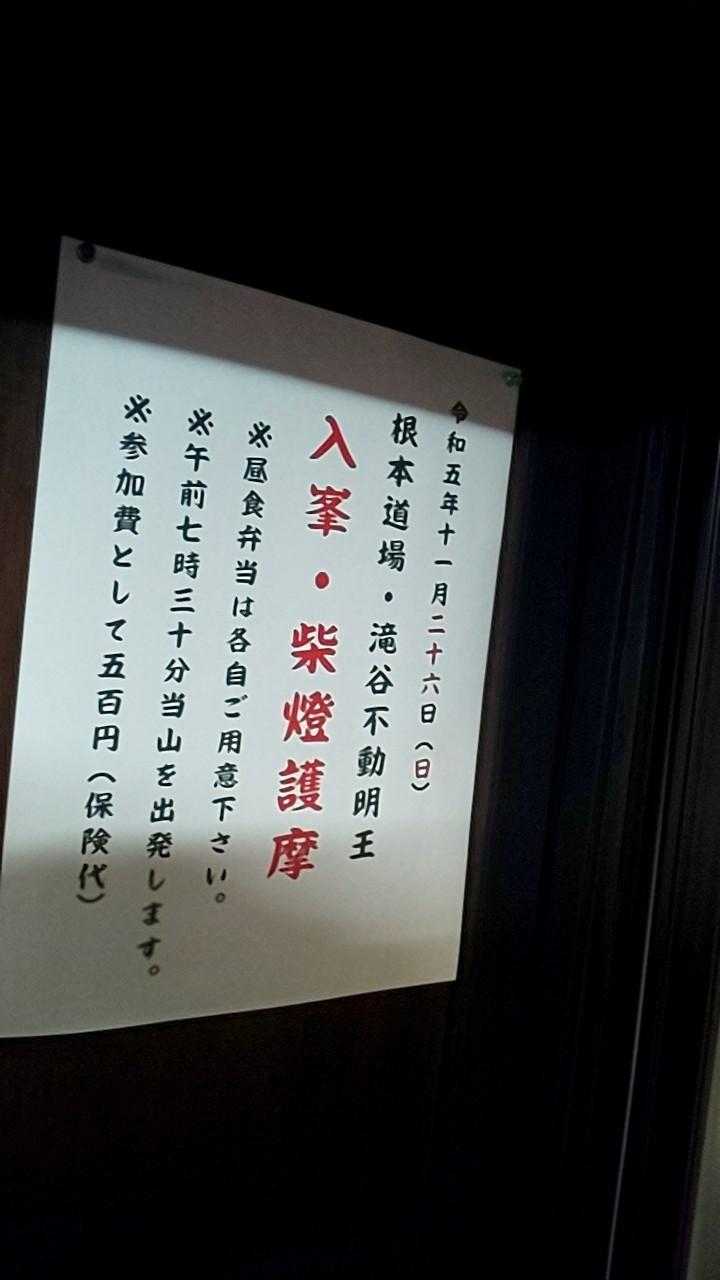 令和五年十一月二十六日(日)
根本道場・滝谷不動明王
入峯・柴燈護摩
※昼食弁当は各自ご用意下さい。
※午前七時三十分当山を出発します。
※参加費として五百円(保険代)